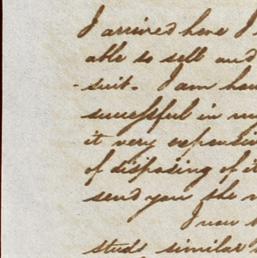 I arrived here I
able to sell and
suit. I am
successful in
it very expensiv
of disposing of it
send you the
I now
studs similar